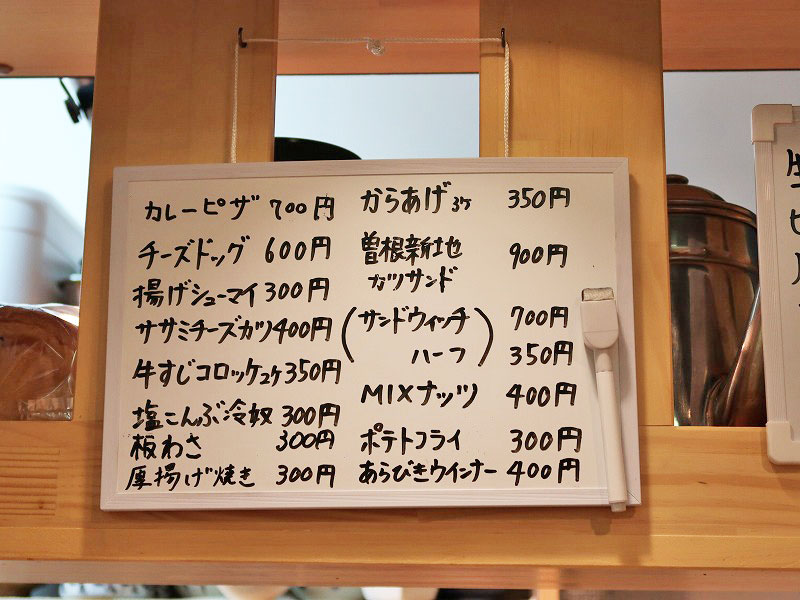 カレーピザ 700円
チーズドッグ 600円
揚げシューマイ 300円
ササミチーズカツ 400円
牛すじコロッケ2ヶ 350円
塩こんぶ冷奴 300円
板わさ 300円
厚揚げ焼き 300円
からあげ3ヶ 350円
曽根新地 900円
カツサンド
(サンドウィッチ 700円
ハーフ) 350円
MIXナッツ 400円
ポテトフライ 300円
あらびきウインナー 400円